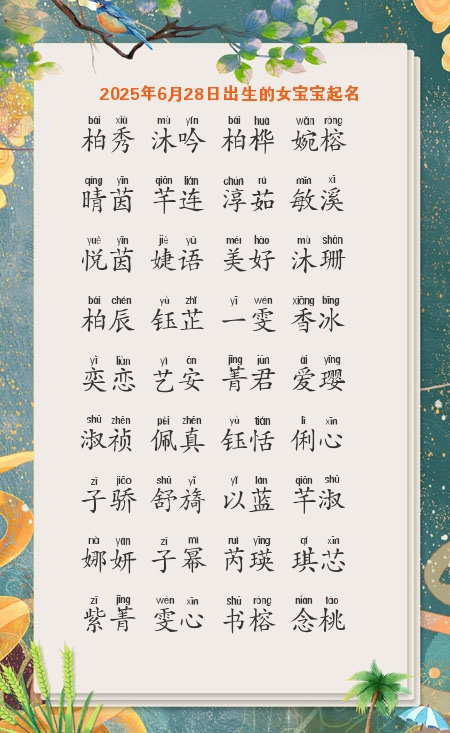 2025年6月28日出生的女宝宝起名
bǎi xiù mù yín bǎi huà wǎn róng
柏秀 沐吟 柏桦 婉榕
qíng yīn qiān lián chún rú mǐn xī
晴茵 芊连 淳茹 敏溪
yuè yīn jié yǔ měi hǎo mù shān
悦茵 婕语 美好 沐珊
bǎi chén yù zhǐ yī wén xiāng bīng
柏辰 钰芷 一雯 香冰
yì liàn yì ān jīng jūn ài yīng
奕恋 艺安 菁君 爱璎
shū zhēn pèi zhēn yù tián lì xīn
淑祯 佩真 钰恬 俐心
zǐ jiāo shū yǐ yǐ lán qiān shū
子骄 舒旖 以蓝 芊淑
nà yán zǐ mì ruì yīng qí xīn
娜妍 子幂 芮瑛 琪芯
zǐ jīng wén xīn shū róng niàn táo
紫菁 雯心 书榕 念桃